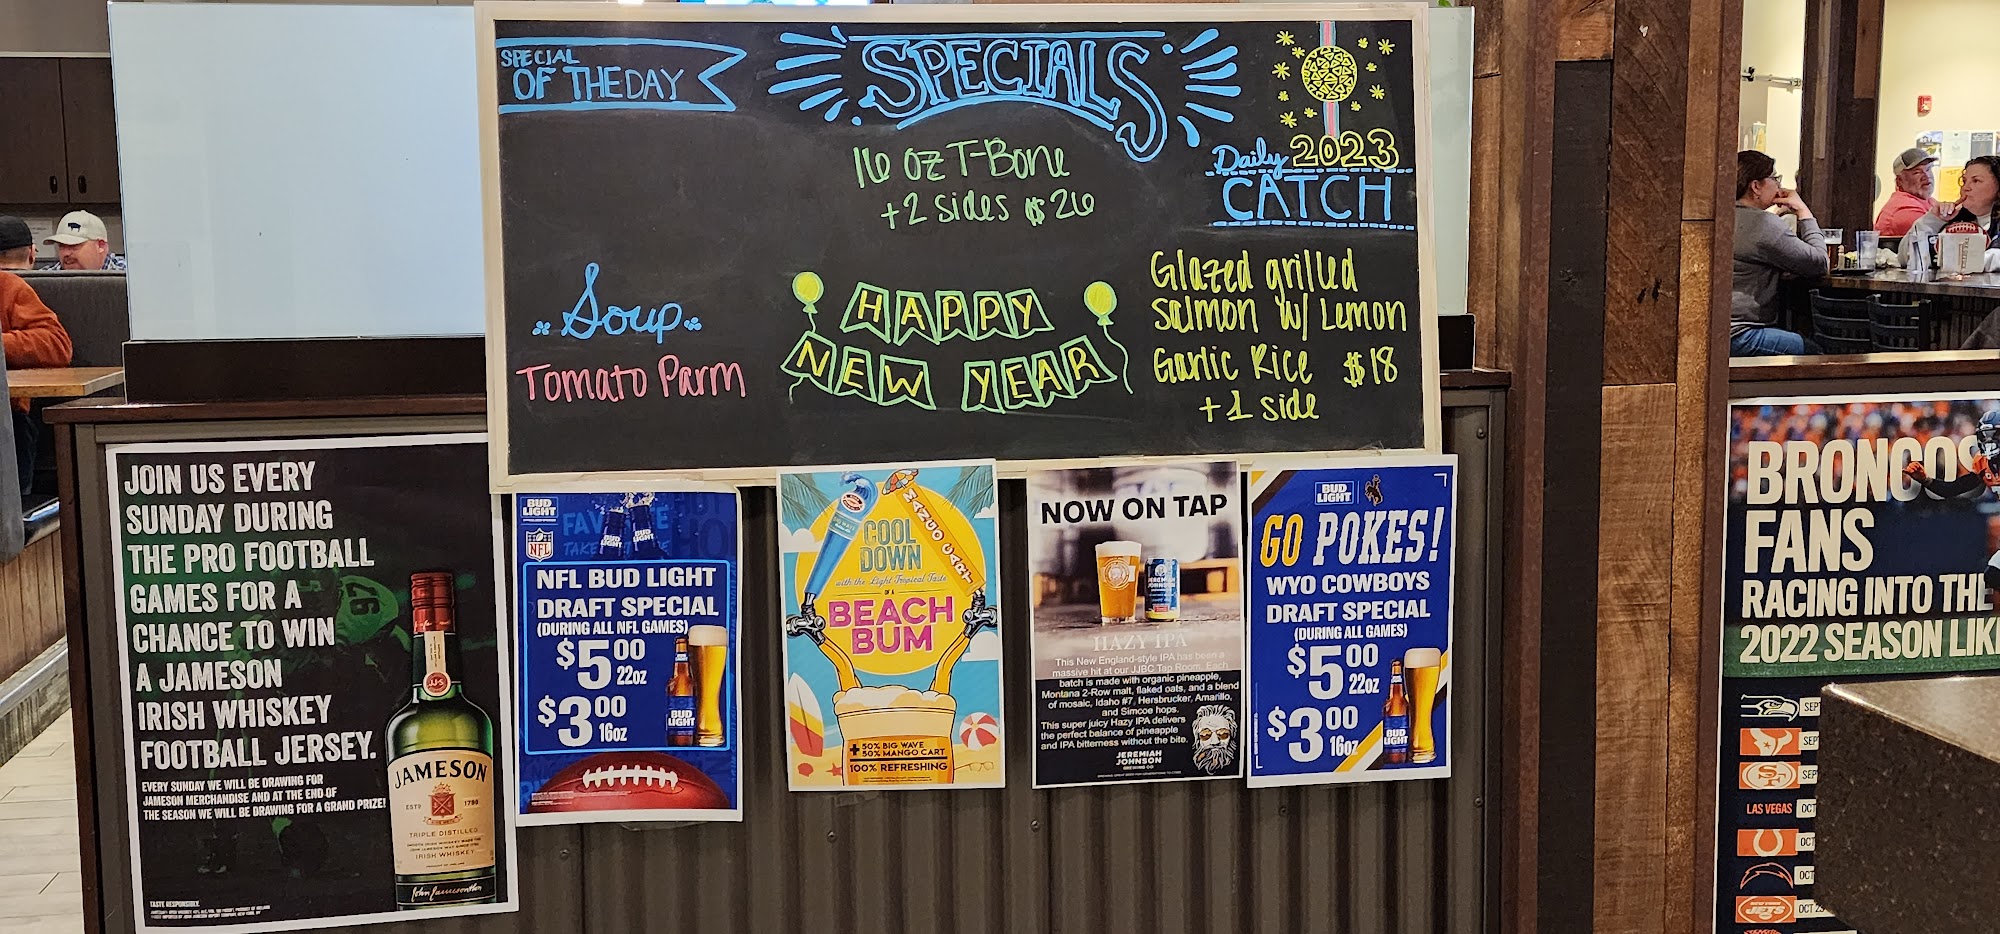 SPECIAL
OF THE DAY
SPECIALS
16 oz T-Bone
+2 sides $26
2023
Daily
CATCH
Glazed grilled
salmon w/ Lemon
Garlic Rice $18
+1 side
Soup
Tomato Parm
HAPPY
NEW YEAR
JOIN US EVERY
SUNDAY DURING
THE PRO FOOTBALL
GAMES FOR A
CHANCE TO WIN
A JAMESON
IRISH WHISKEY
FOOTBALL JERSEY.
EVERY SUNDAY WE WILL BE DRAWING FOR
JAMESON MERCHANDISE AND AT THE END OF
THE SEASON WE WILL BE DRAWING FOR A GRAND PRIZE!
TASTE RESPONSIBLY.
JJ&S
JAMESON
ESTD 1780
TRIPLE DISTILLED
IRISH WHISKEY
John Jameson
BUD
LIGHT
NFL
BUD
LIGHT
BUD
LIGHT
NFL BUD LIGHT
DRAFT SPECIAL
(DURING ALL NFL GAMES)
$5.00
22oz
$3.00
16oz
BUD
LIGHT
MANGO CART
COOL
DOWN
with the Light Tropical Taste
OF A
BEACH
BUM
+ 50% BIG WAVE
50% MANGO CART
100% REFRESHING
NOW ON TAP
JEREMIAH
JOHNSON
HAZY IPA
This New England-style IPA has been a
massive hit at our JJBC Tap Room. Each
batch is made with organic pineapple,
Montana 2-Row malt, flaked oats, and a blend
of mosaic, Idaho #7, Hersbrucker, Amarillo,
and Simcoe hops.
This super juicy Hazy IPA delivers
the perfect balance of pineapple
and IPA bitterness without the bite.
JEREMIAH
JOHNSON
BREWING CO
BUD
LIGHT
GO POKES!
WYO COWBOYS
DRAFT SPECIAL
(DURING ALL GAMES)
$5.00
22oz
$3.00
16oz
BUD
LIGHT
BRONCOS
FANS
RACING INTO THE
2022 SEASON LIK
SEP
SEP
SEP
LAS VEGAS OCT
OCT
OCT
JETS OCT 23